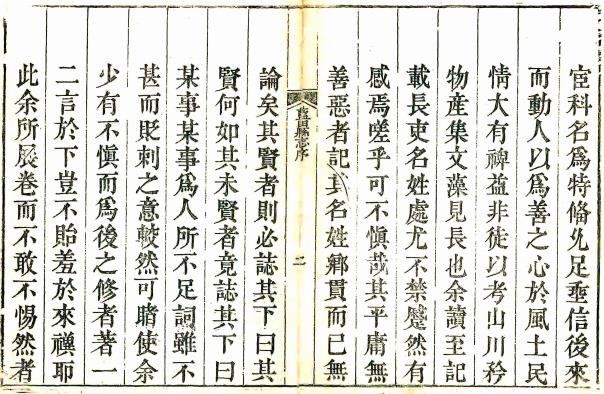 宦科名爲特僃允足垂信後來
而動人以爲善之心於風土民
情大有裨益非徒以考山川矜
物產集文藻見長也余讀至記
載長吏名姓處尤不禁蹙然有
感焉嗟乎可不慎哉其平庸無
善惡者記其名姓鄉貫而已無
縣志序
二
論矣其賢者則必誌其下曰其
賢何如其未賢者竟誌其下曰
某事某事爲人所不足詞雖不
甚而貶刺之意較然可睹使余
少有不慎而爲後之修者著一
二言於下豈不貽羞於來禩耶
此余所展卷而不敢不惕然者